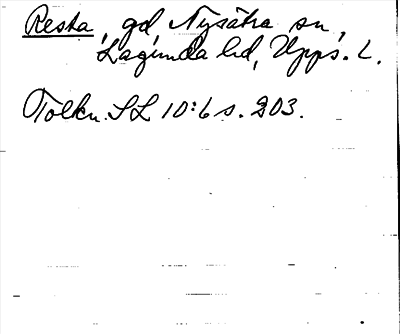 Resta, gd, Nysätra sn,
Lagunda hd, Upps. L.
Tolkn. SL 10:6 s. 203.